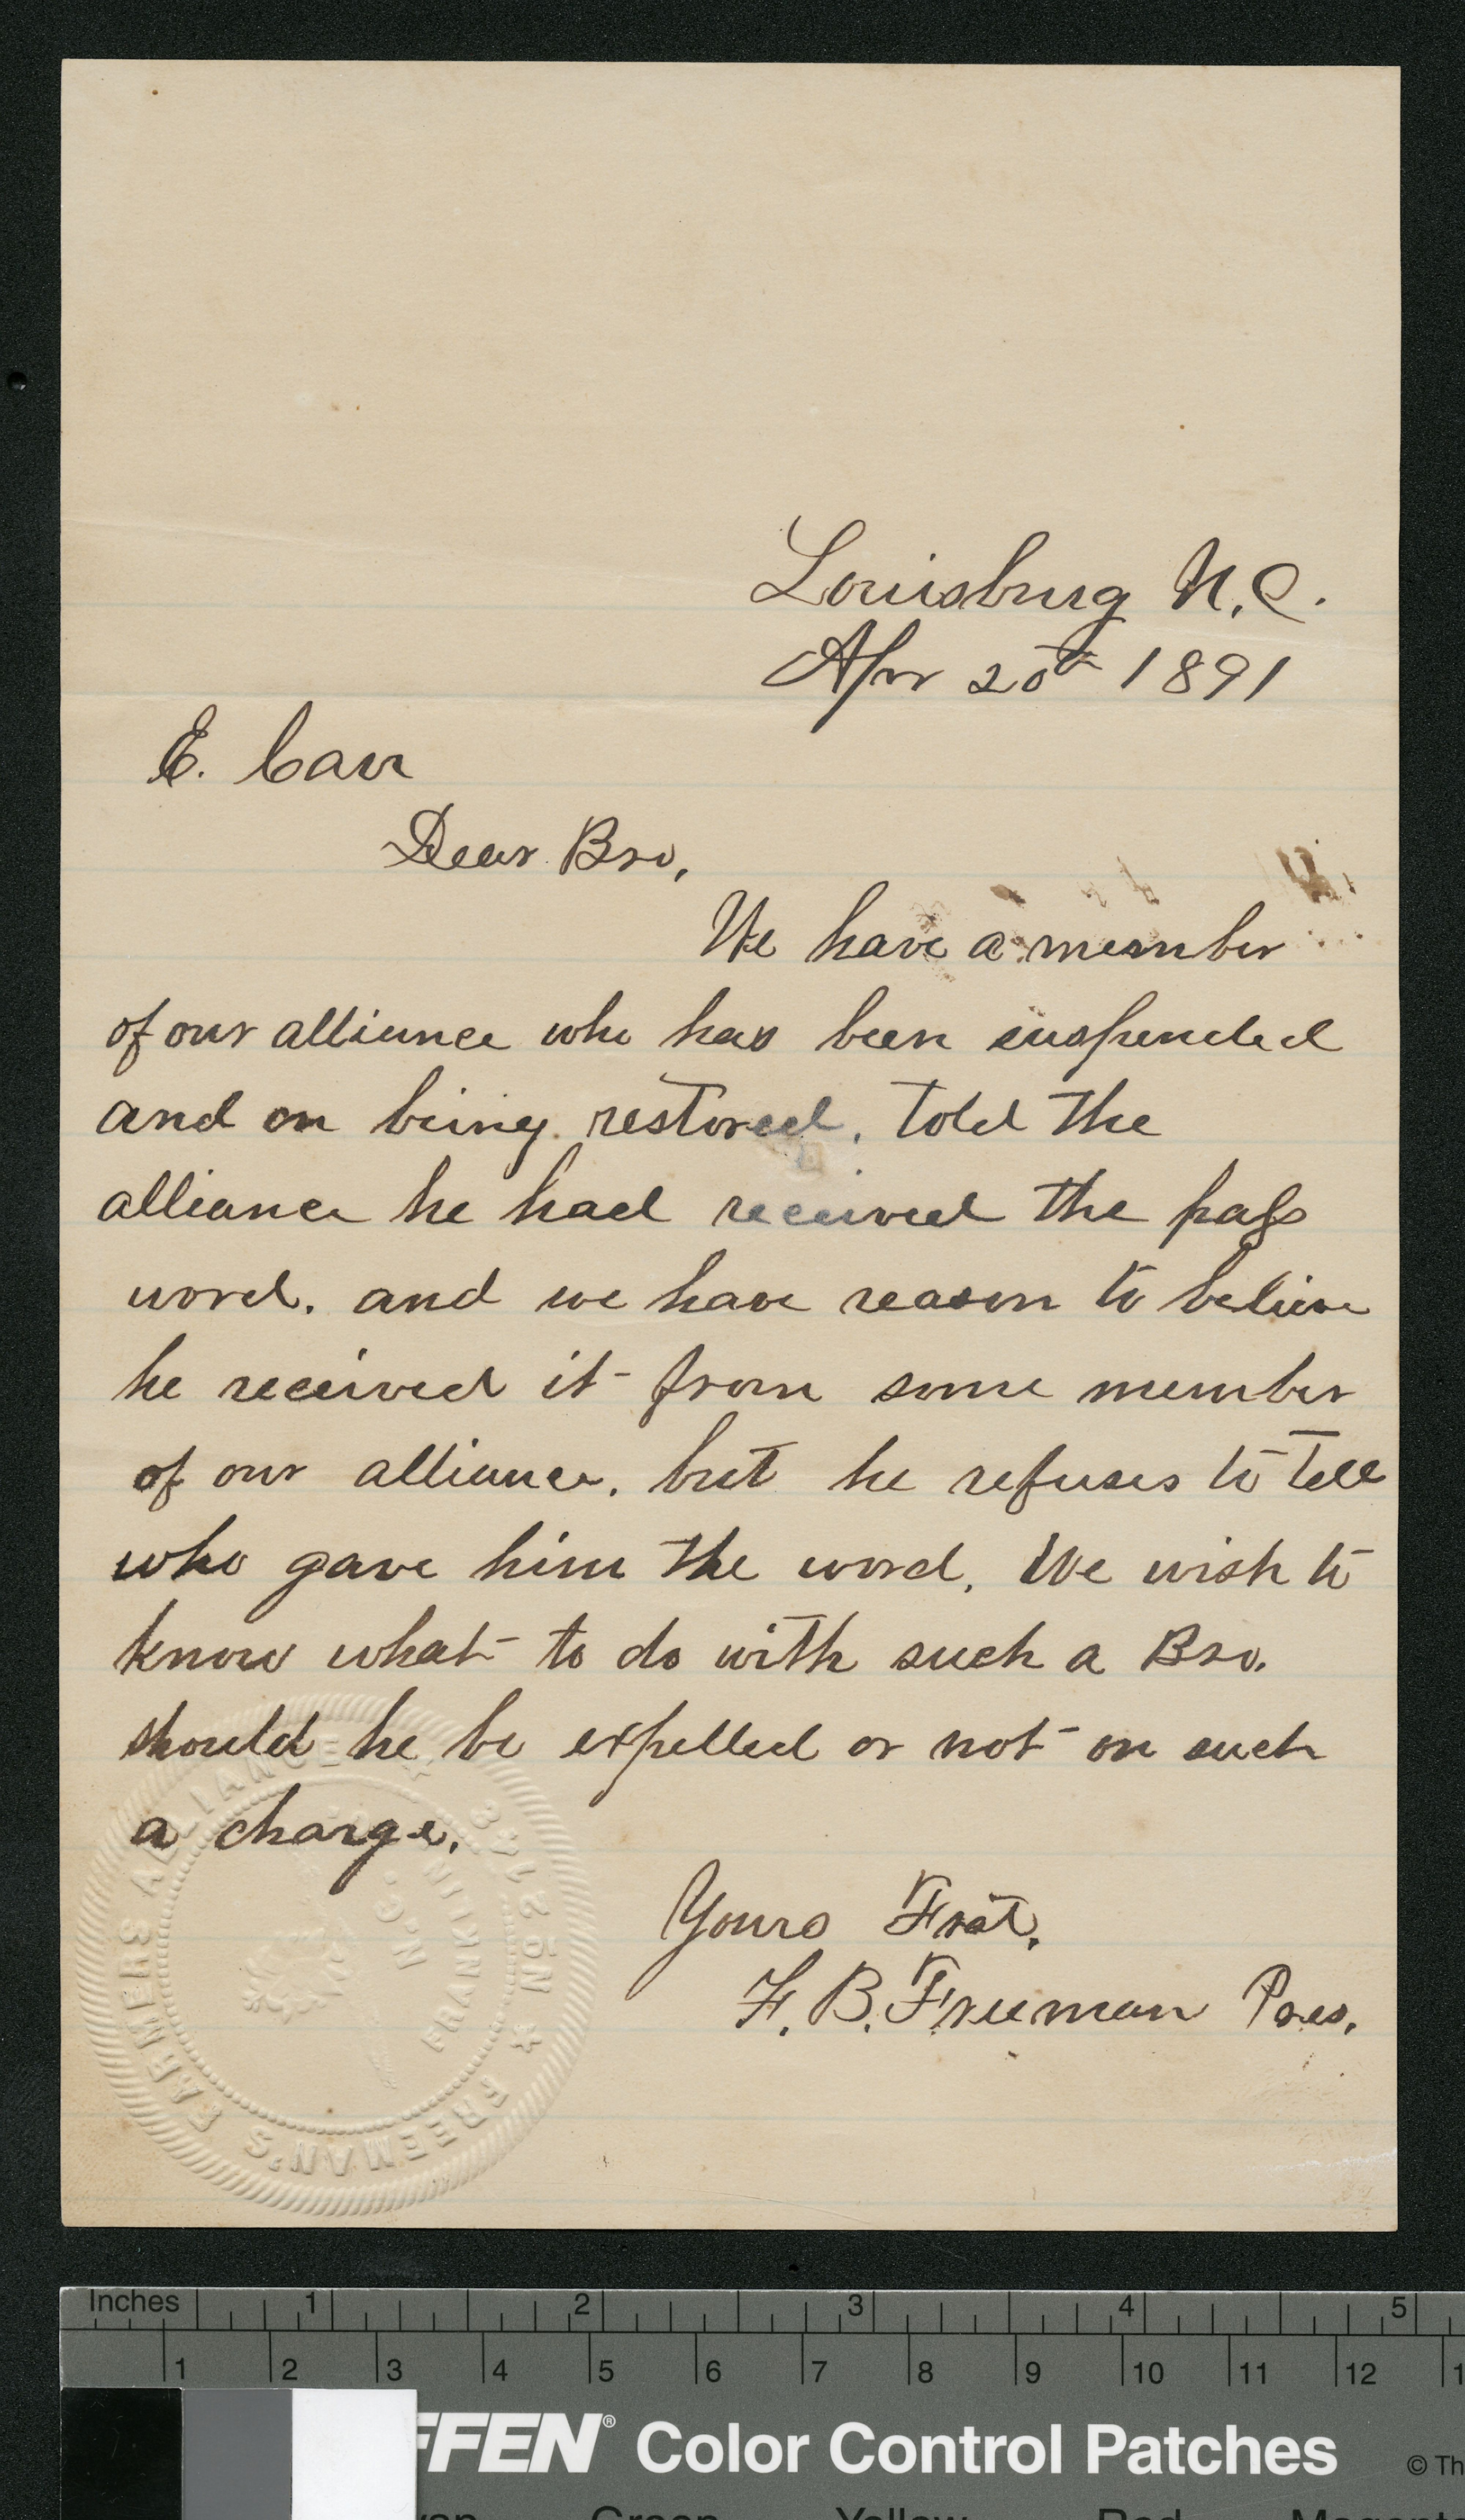 Louisburg N.C.
Apr 20th 1891
E. Carr
Dear Bro,
We have a member
of our alliance who has been suspended
and on being restored, told the
alliance he had received the pass
word. and we have reason to believe
he received it from some member
of our alliance, but he refuses to tell
who gave him the word. We wish to
know what to do with such a Bro.
should he be expelled or not on such
a charge.
Yours Frat,
F. B. Freeman Pres.
FREEMAN'S FARMERS ALLIANCE
FRANKLIN
N.C.
Inches 1 2 3 4 5
1 2 3 4 5 6 7 8 9 10 11 12 1
FFEN® Color Control Patches © Th